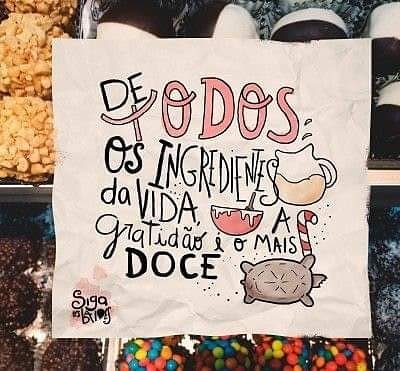 DE
TODOS
OS INGREDIENTES
da VIDA, A
gratidão é o MAIS
DOCE
Siga
os
Balões